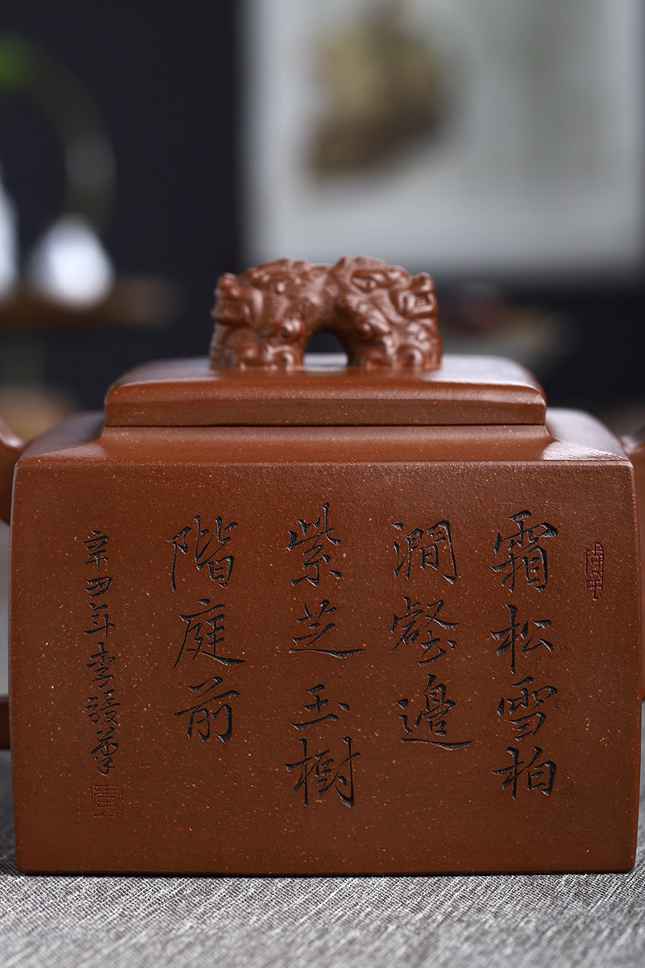 霜松雪柏
澗壑邊
紫芝玉樹
階庭前
辛丑年李